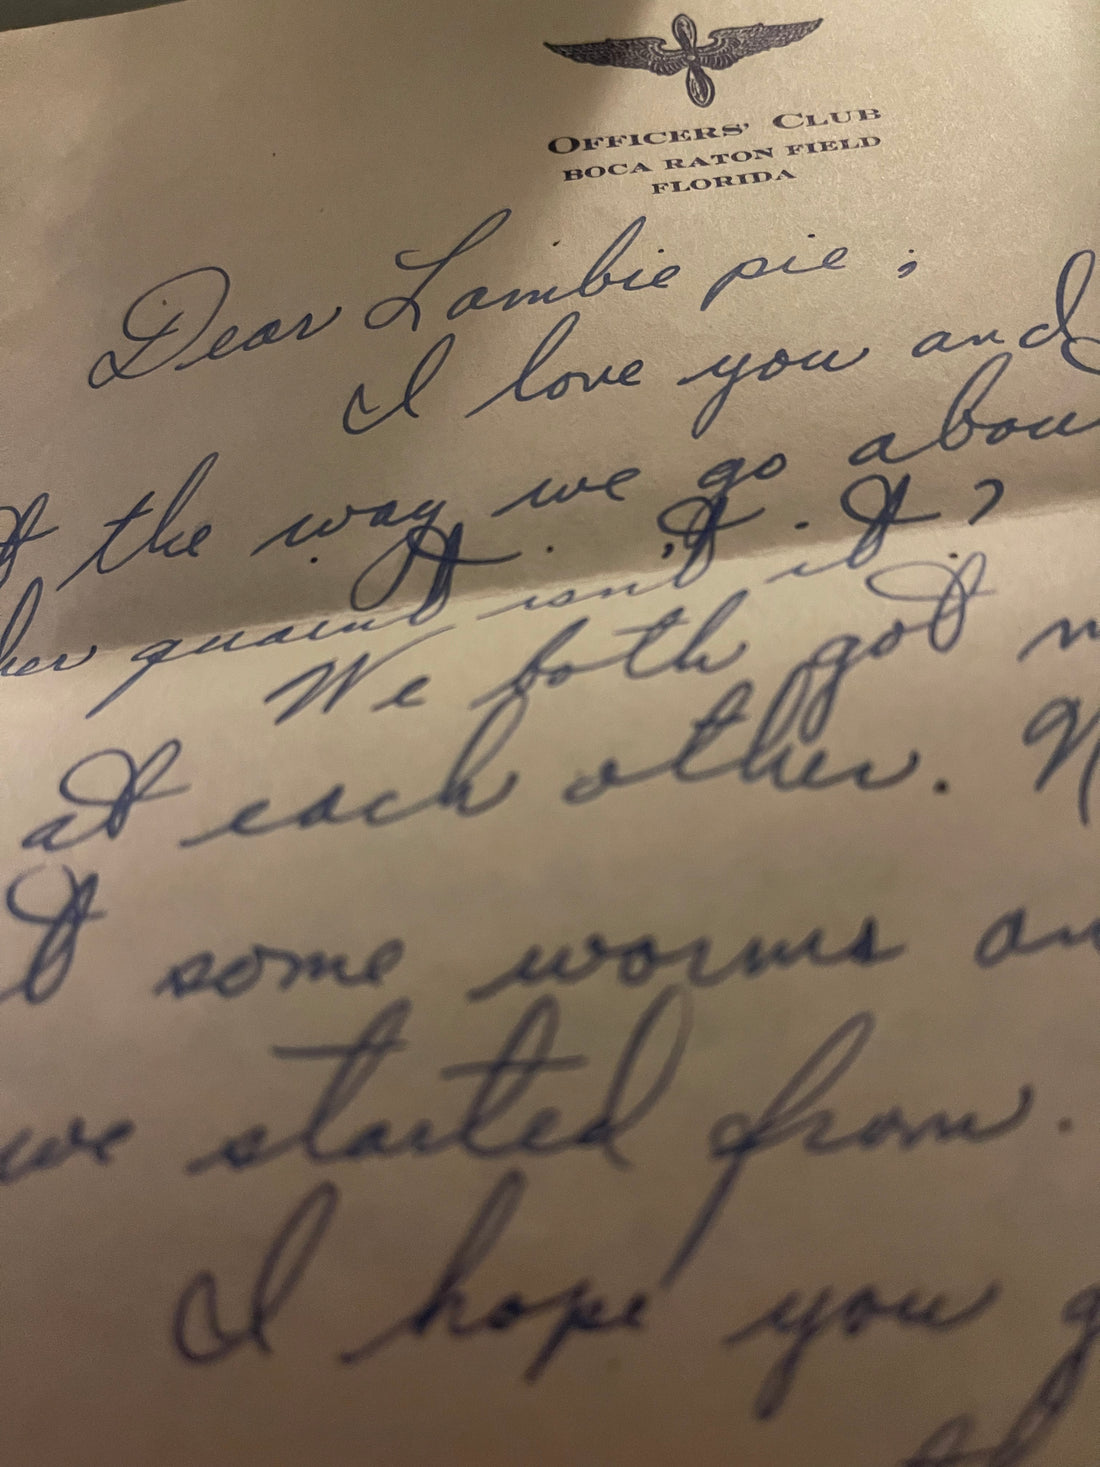 OFFICERS' CLUB
BOCA RATON FIELD
FLORIDA
Dear Lambie pie;
I love you and
the way we go abou
quaint isn't it?
We both got
at each other.
some worms an
we started from.
I hope you g